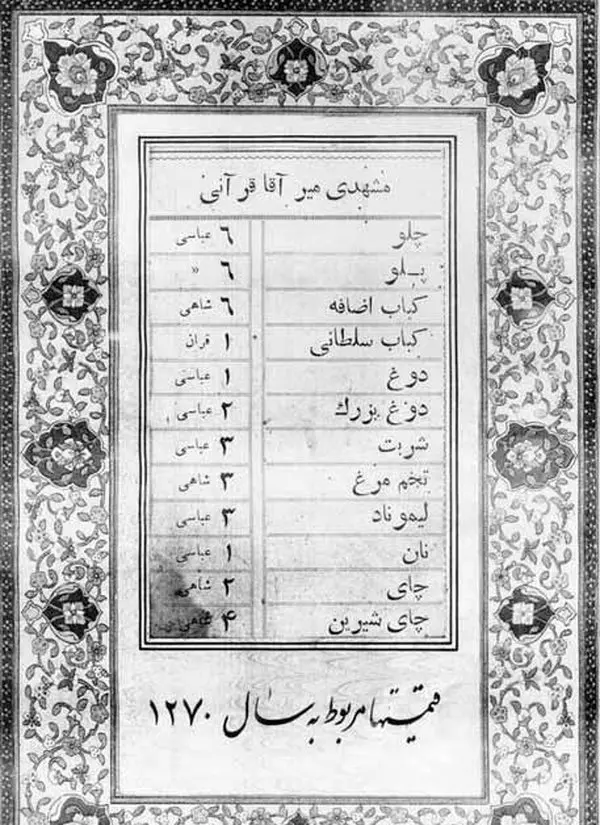 مشهدی میر آقا قرآنی
چلو ٦ عباسی
پلو ٦ «
کباب اضافه ٦ شاهی
کباب سلطانی ۱ قران
دوغ ۱ عباسی
دوغ بزرك ۲ عباسی
شربت ۳ عباسی
تخم مرغ ۳ شاهی
لیمو ناد ۳ عباسی
نان ۱ عباسی
چای ۲ شاهی
چای شیرین ۴ شاهی
قیمتها مربوط به سال ۱۲۷۰